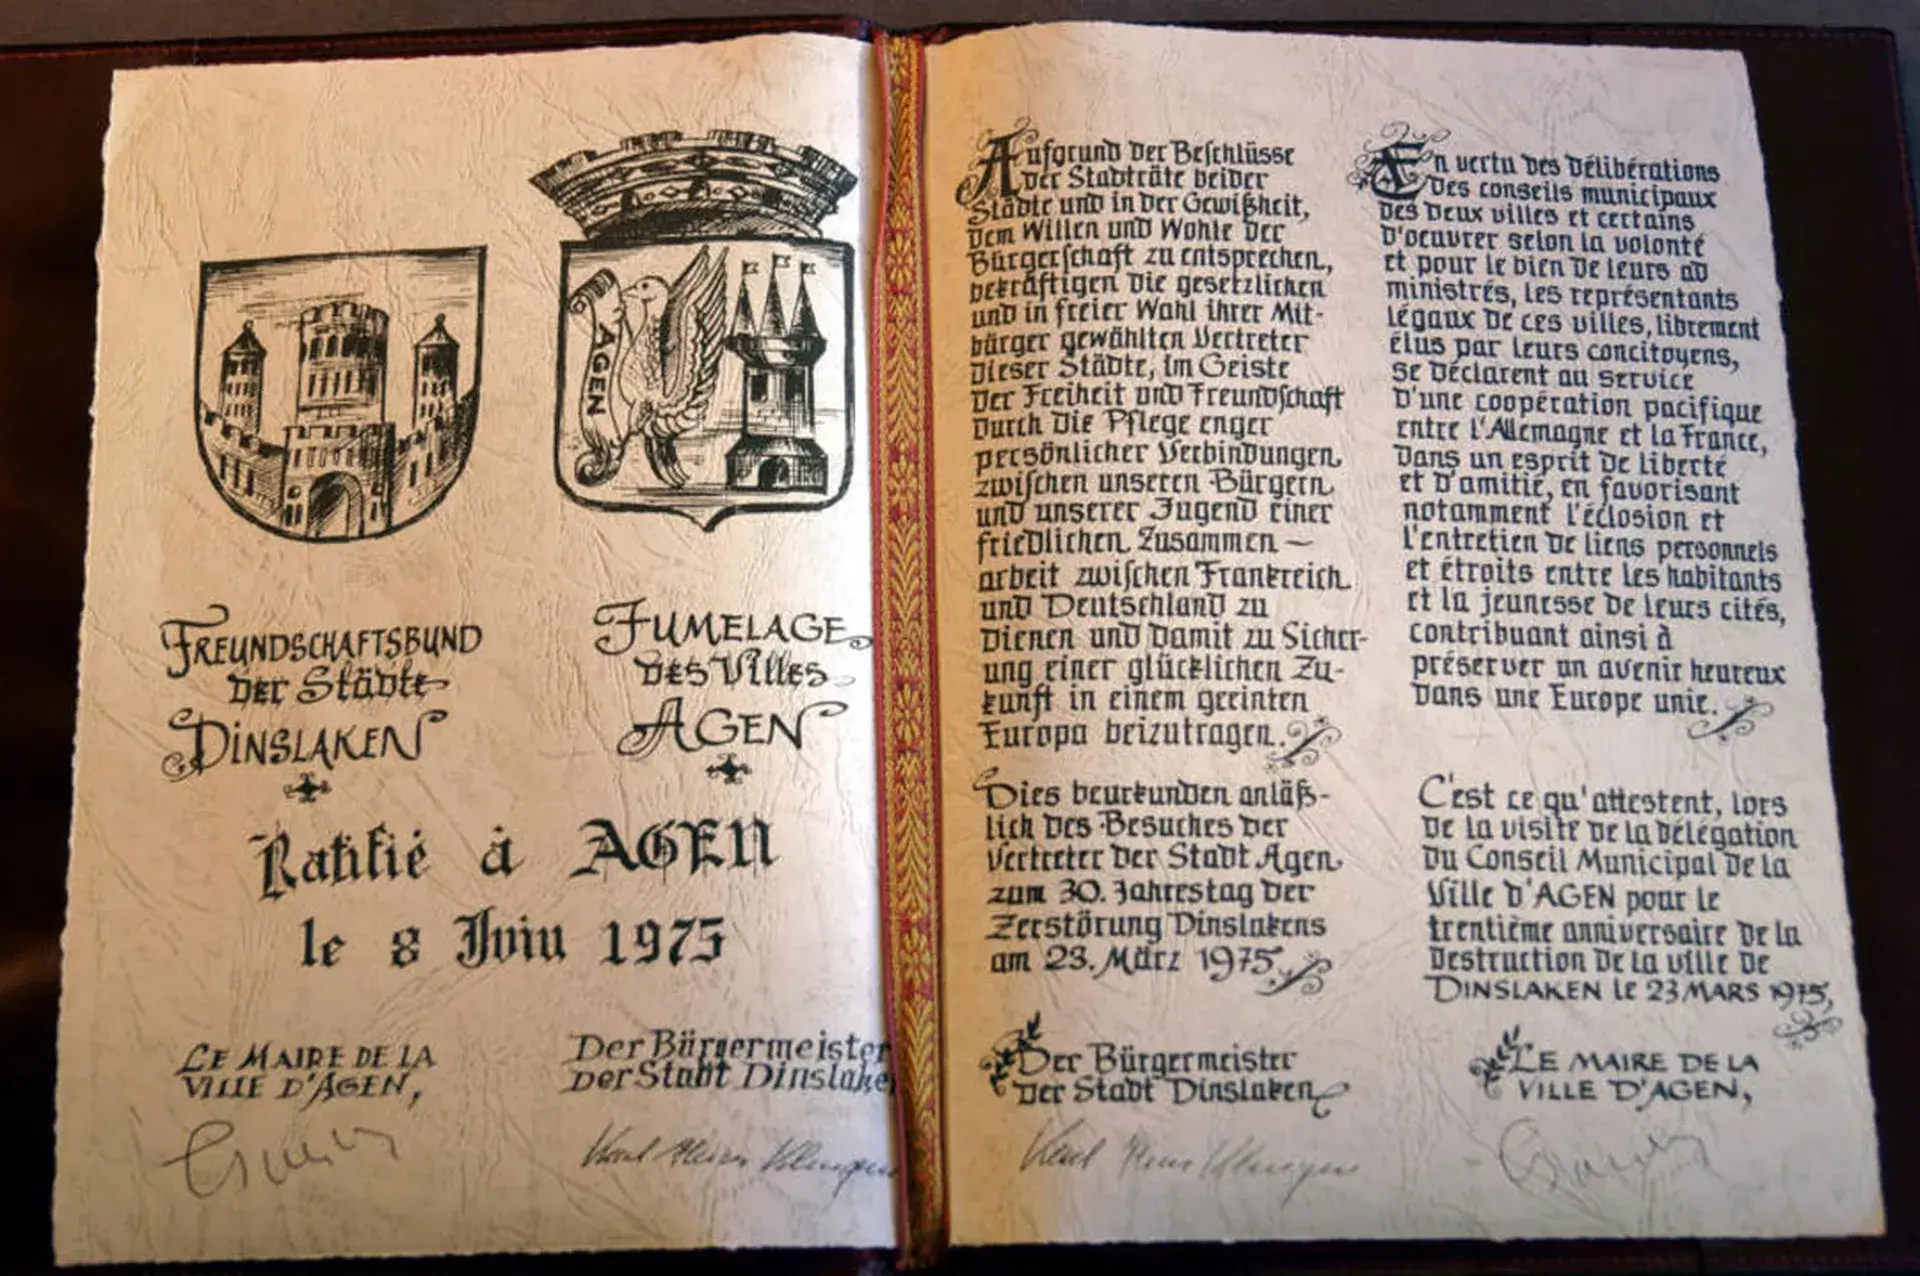 AGEN
FREUNDSCHAFTSBUND
der Städte
DINSLAKEN
FUMELAGE
des Villes
AGEN
Ratifié à AGEN
le 8 Juin 1975
LE MAIRE DE LA
VILLE D'AGEN,
Der Bürgermeister
der Stadt Dinslaken
Aufgrund der Beschlüsse
der Stadträte beider
Städte und in der Gewißheit,
dem Willen und Wohle der
Bürgerschaft zu entsprechen,
bekräftigen die gesetzlichen
und in freier Wahl ihrer Mit-
bürger gewählten Vertreter
dieser Städte, im Geiste
der Freiheit und Freundschaft
durch die Pflege enger
persönlicher Verbindungen
zwischen unseren Bürgern
und unserer Jugend einer
friedlichen Zusammen-
arbeit zwischen Frankreich
und Deutschland zu
dienen und damit zu Sicher-
ung einer glücklichen Zu-
kunft in einem geeinten
Europa beizutragen.
Dies beurkunden anläß-
lich des Besuches der
Vertreter der Stadt Agen
zum 30. Jahrestag der
Zerstörung Dinslakens
am 23. März 1975
Der Bürgermeister
der Stadt Dinslaken
En vertu des délibérations
des conseils municipaux
des deux villes et certains
d'oeuvrer selon la volonté
et pour le bien de leurs ad
ministrés, les représentants
légaux de ces villes, librement
élus par leurs concitoyens,
se déclarent au service
d'une coopération pacifique
entre l'Allemagne et la France,
dans un esprit de liberté
et d'amitié, en favorisant
notamment l'éclosion et
l'entretien de liens personnels
et étroits entre les habitants
et la jeunesse de leurs cités,
contribuant ainsi à
préserver un avenir heureux
dans une Europe unie.
C'est ce qu'attestent, lors
de la visite de la délégation
du Conseil Municipal de la
Ville d'AGEN pour le
trentième anniversaire de la
destruction de la ville de
DINSLAKEN le 23 MARS 1975,
LE MAIRE DE LA
VILLE D'AGEN,